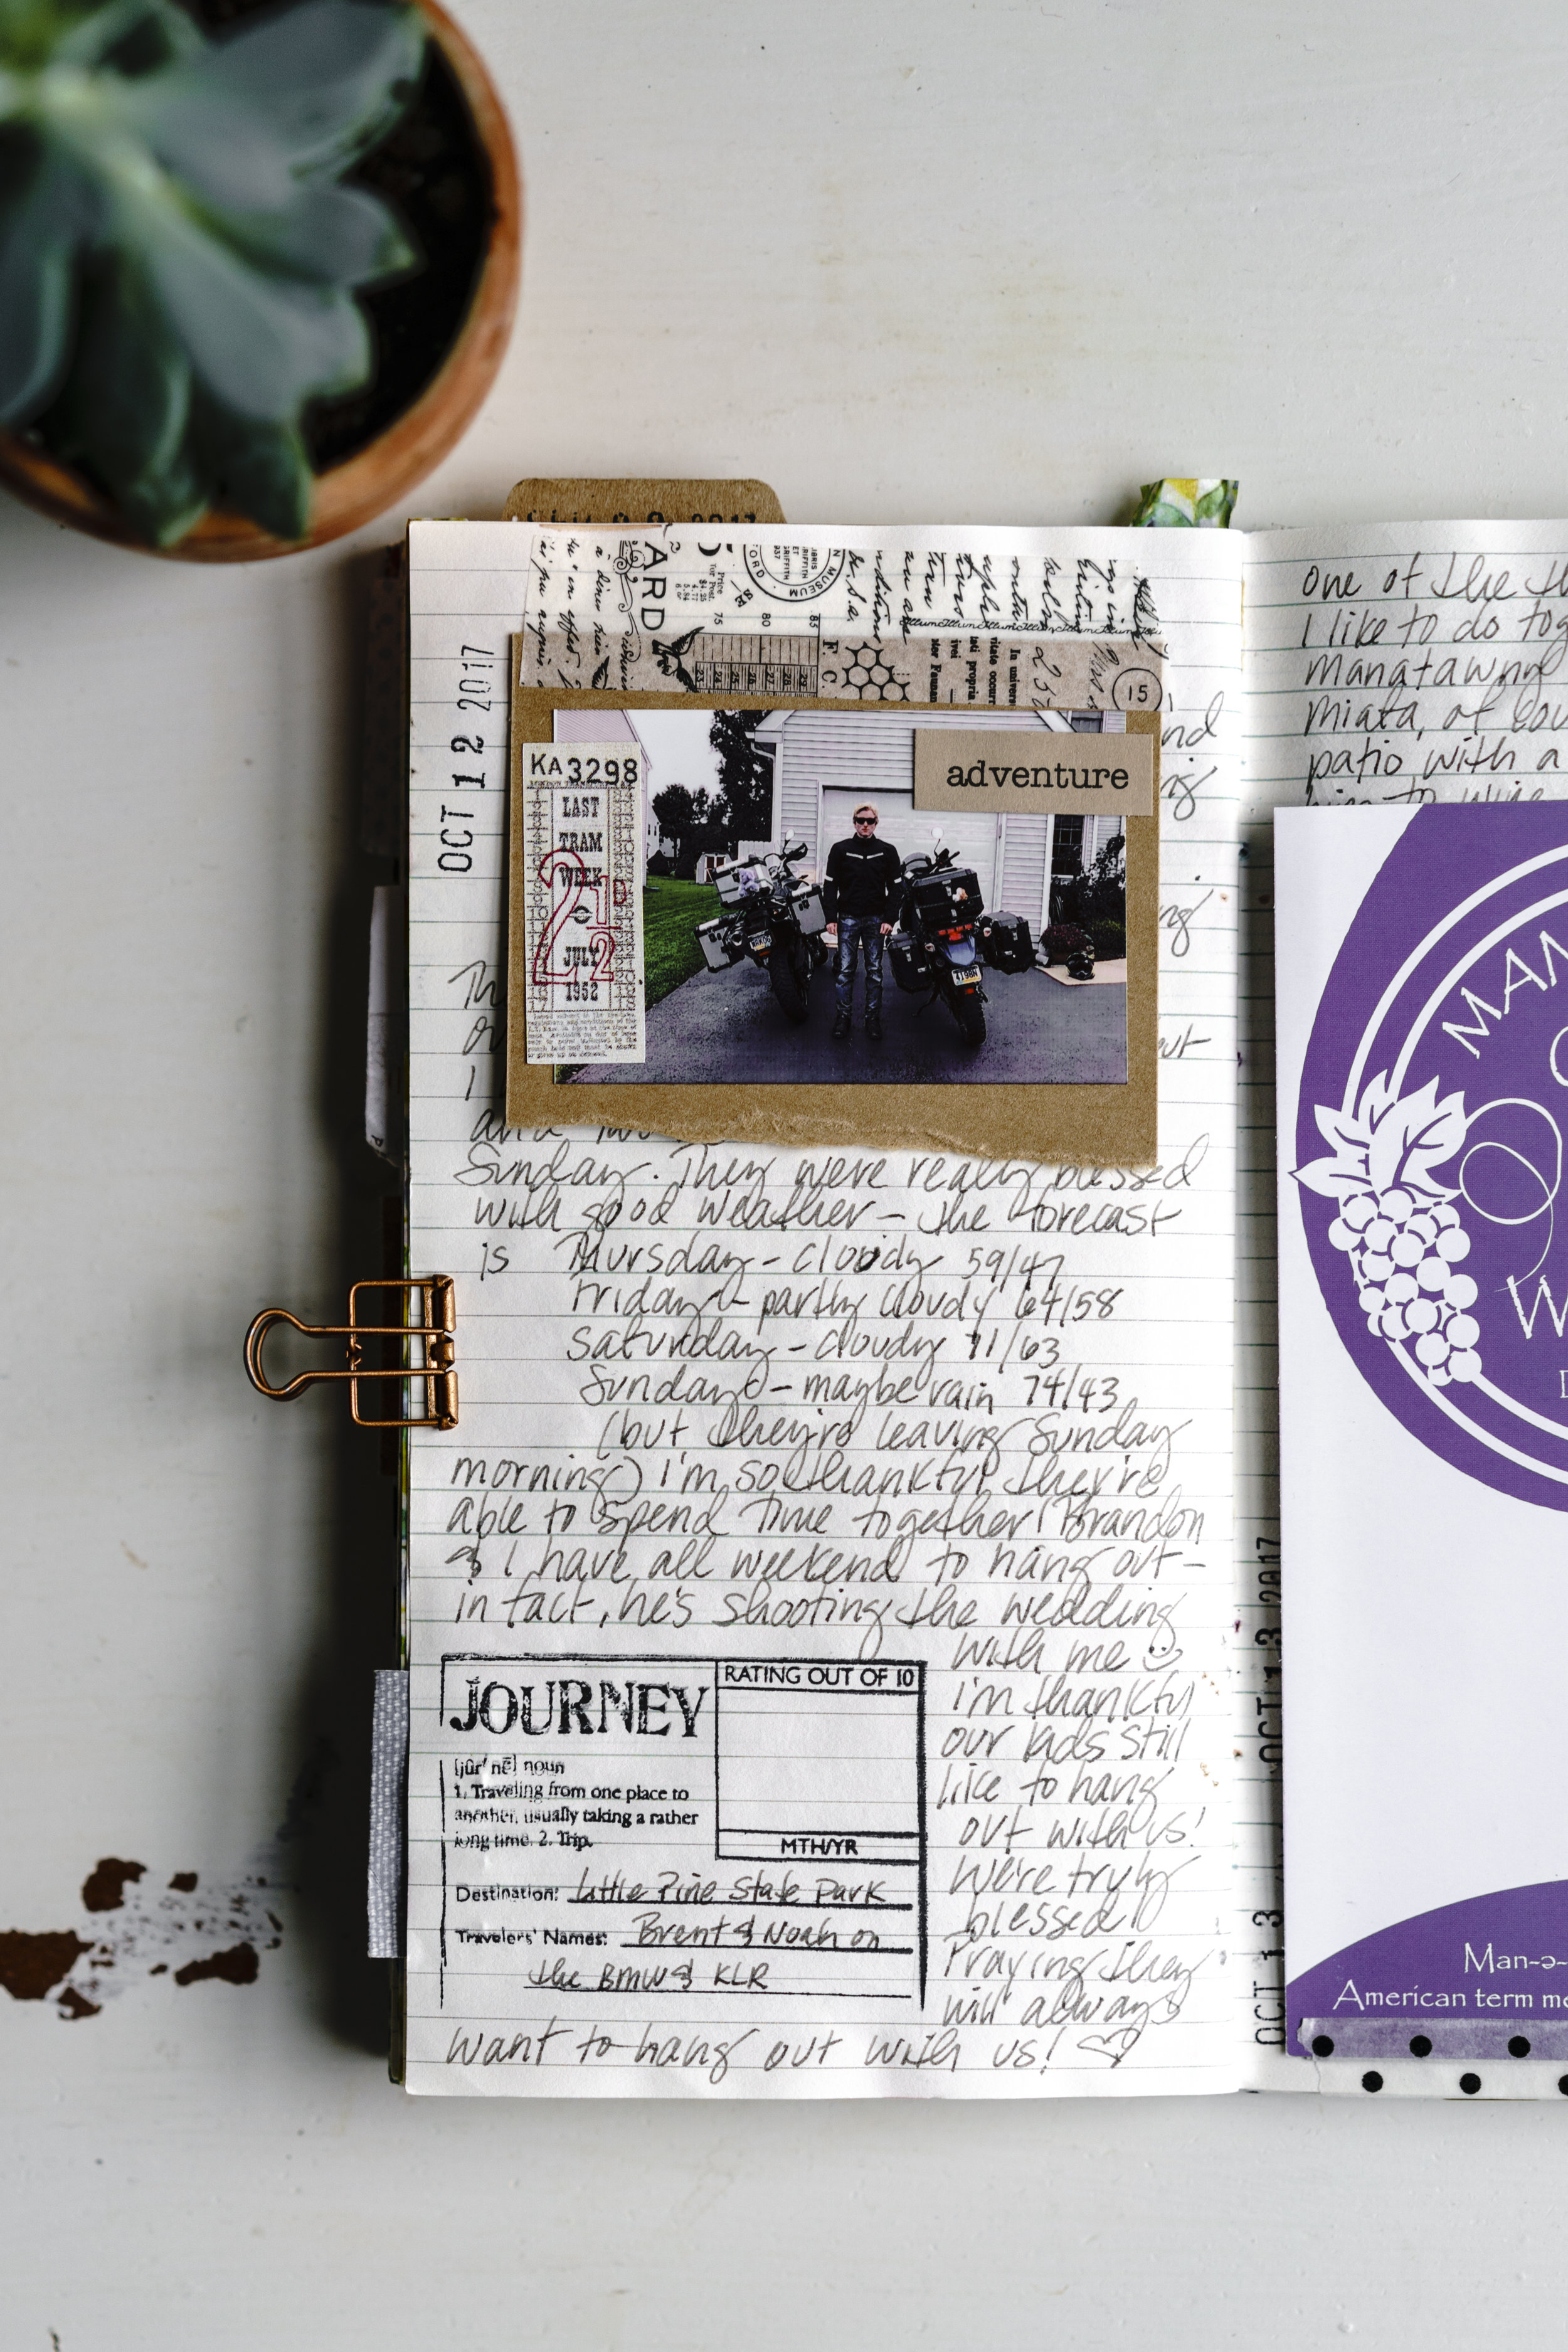 OCT 12 2017
ARD
MUSEUM
75
80
85
F. C.
15
KA3298
LAST
TRAM
WEEK
2 1/2 D
JULY
1952
adventure
nd
Th
I
Sunday. They were really blessed
with good weather – the forecast
is Thursday – cloudy 59/47
Friday – partly cloudy 64/58
Saturday – cloudy 71/63
Sunday – maybe rain 74/43
(but they're leaving Sunday
morning) I'm so thankful they're
able to spend time together! Brandon
& I have all weekend to hang out –
in fact, he's shooting the wedding
with me
I'm thankful
our kids still
like to hang
out with us!
We're truly
blessed!
Praying they
will always
want to hang out with us!
JOURNEY
RATING OUT OF 10
[jûr' nē] noun
1. Traveling from one place to
another, usually taking a rather
long time. 2. Trip.
MTH/YR
Destination: Little Pine State Park
Travelers' Names: Brent & Noah on
the BMW & KLR
one of the th
I like to do tog
Manatawny
Miata, of cou
patio with a
OCT 13 2017
OCT 13
MAN
W
Man-ə-
American term me